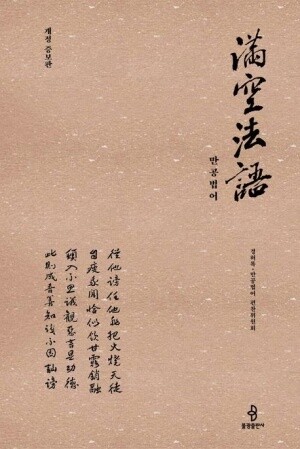 개정 증보판
滿空法語
만공법어
경허록·만공법어 편찬위원회
從他謗任他非把火燒天徒
自疲我聞恰似飮甘露銷融
頓入不思議觀惡言是功德
此則成吾善知識不因訕謗
불광출판사